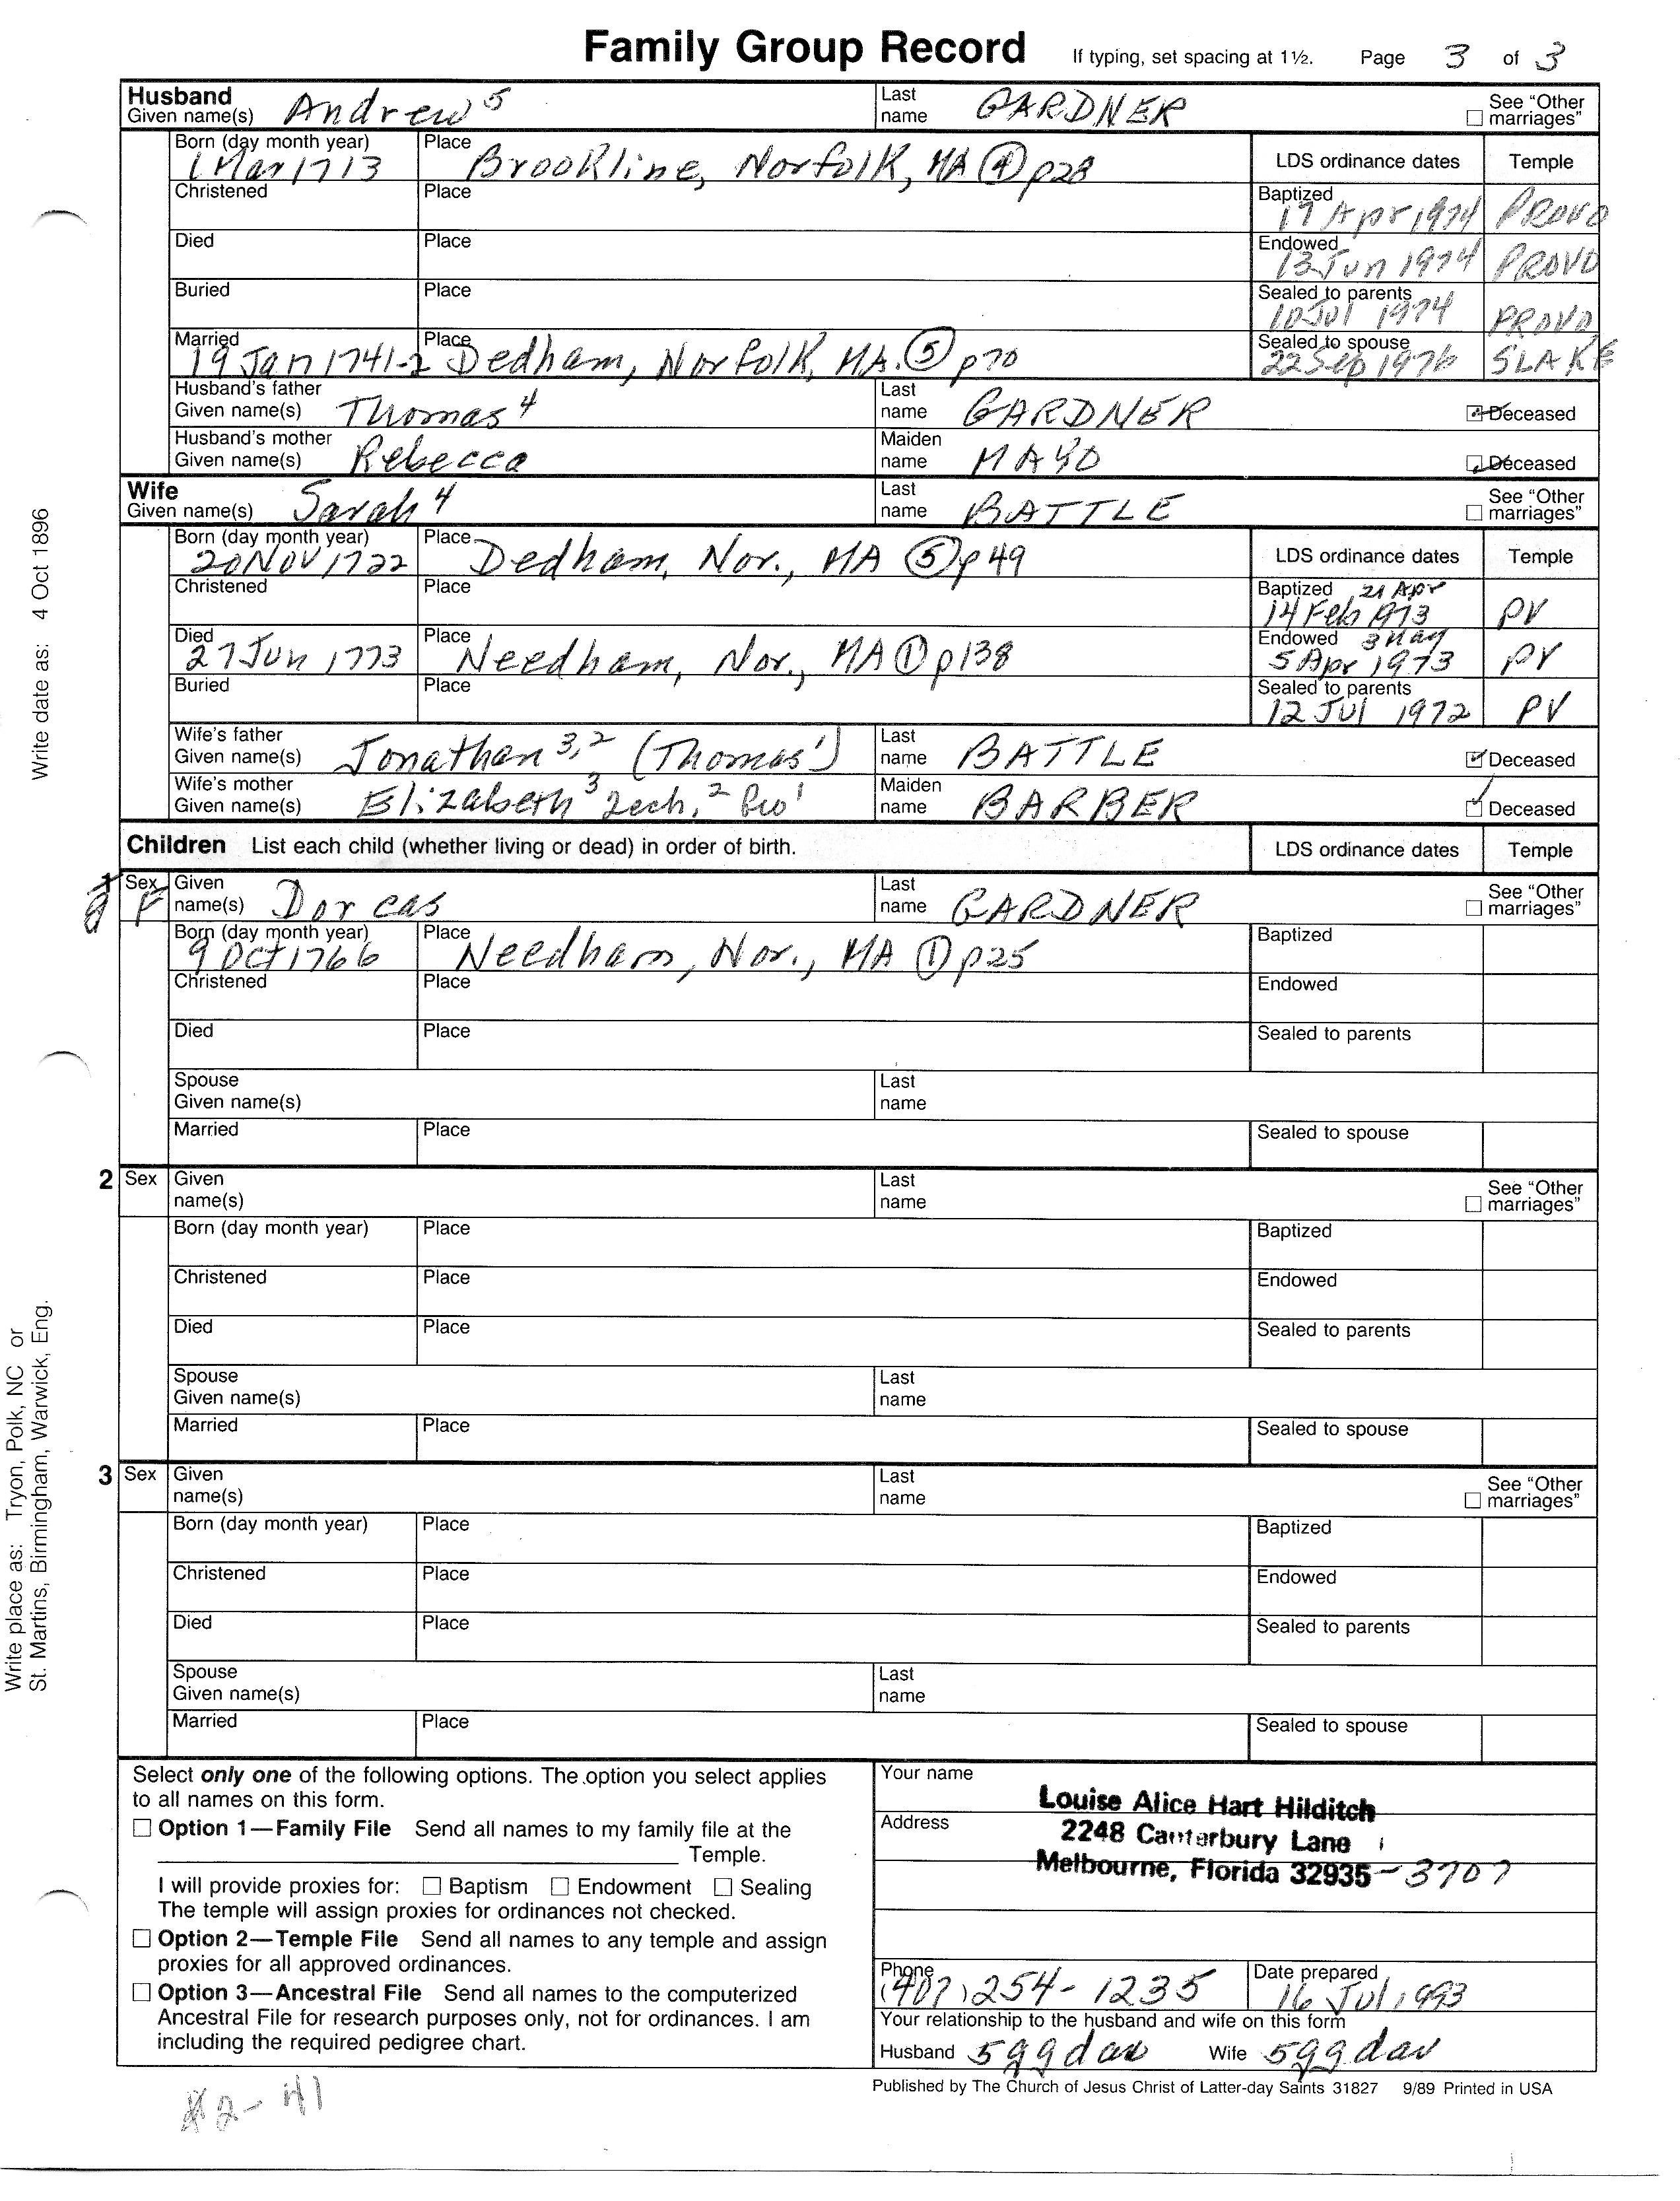 Family Group Record If typing, set spacing at 1½. Page 3 of 3
Husband
Given name(s) Andrew 5 Last name GARDNER See "Other marriages"
Born (day month year) 1 Mar 1713 Place Brookline, Norfolk, MA ④ p28 LDS ordinance dates Temple
Christened Place Baptized 17 Apr 1974 PROVO
Died Place Endowed 13 Jun 1974 PROVO
Buried Place Sealed to parents 10 Jul 1974 PROVO
Married 19 Jan 1741-2 Place Dedham, Norfolk, MA. ⑤ p70 Sealed to spouse 22 Sep 1976 SLAKE
Husband's father
Given name(s) Thomas 4 Last name GARDNER Deceased
Husband's mother
Given name(s) Rebecca Maiden name MAYO Deceased
Wife
Given name(s) Sarah 4 Last name BATTLE See "Other marriages"
Born (day month year) 20 NOV 1722 Place Dedham, Nor., MA ⑤ p49 LDS ordinance dates Temple
Christened Place Baptized 21 Apr 14 Feb 1973 PV
Died 27 Jun 1773 Place Needham, Nor., MA ① p138 Endowed 3 May 5 Apr 1973 PV
Buried Place Sealed to parents 12 Jul 1972 PV
Wife's father
Given name(s) Jonathan 3,2 (Thomas 1) Last name BATTLE Deceased
Wife's mother
Given name(s) Elizabeth 3 Zech, 2 1 Maiden name BARBER Deceased
Children List each child (whether living or dead) in order of birth. LDS ordinance dates Temple
8 Sex F Given name(s) Dorcas Last name GARDNER See "Other marriages"
Born (day month year) 9 Oct 1766 Place Needham, Nor., MA ① p25 Baptized
Christened Place Endowed
Died Place Sealed to parents
Spouse
Given name(s) Last name
Married Place Sealed to spouse
2 Sex Given name(s) Last name See "Other marriages"
Born (day month year) Place Baptized
Christened Place Endowed
Died Place Sealed to parents
Spouse
Given name(s) Last name
Married Place Sealed to spouse
3 Sex Given name(s) Last name See "Other marriages"
Born (day month year) Place Baptized
Christened Place Endowed
Died Place Sealed to parents
Spouse
Given name(s) Last name
Married Place Sealed to spouse
Write date as: 4 Oct 1896
Write place as: Tryon, Polk, NC or
St. Martins, Birmingham, Warwick, Eng.
Select only one of the following options. The option you select applies
to all names on this form.
Option 1—Family File Send all names to my family file at the
Temple.
I will provide proxies for: Baptism Endowment Sealing
The temple will assign proxies for ordinances not checked.
Option 2—Temple File Send all names to any temple and assign
proxies for all approved ordinances.
Option 3—Ancestral File Send all names to the computerized
Ancestral File for research purposes only, not for ordinances. I am
including the required pedigree chart.
Your name Louise Alice Hart Hilditch
Address 2248 Canterbury Lane
Melbourne, Florida 32935-3707
Phone (407) 254-1235 Date prepared 16 Jul 1993
Your relationship to the husband and wife on this form
Husband 5ggdau Wife 5ggdau
Published by The Church of Jesus Christ of Latter-day Saints 31827 9/89 Printed in USA